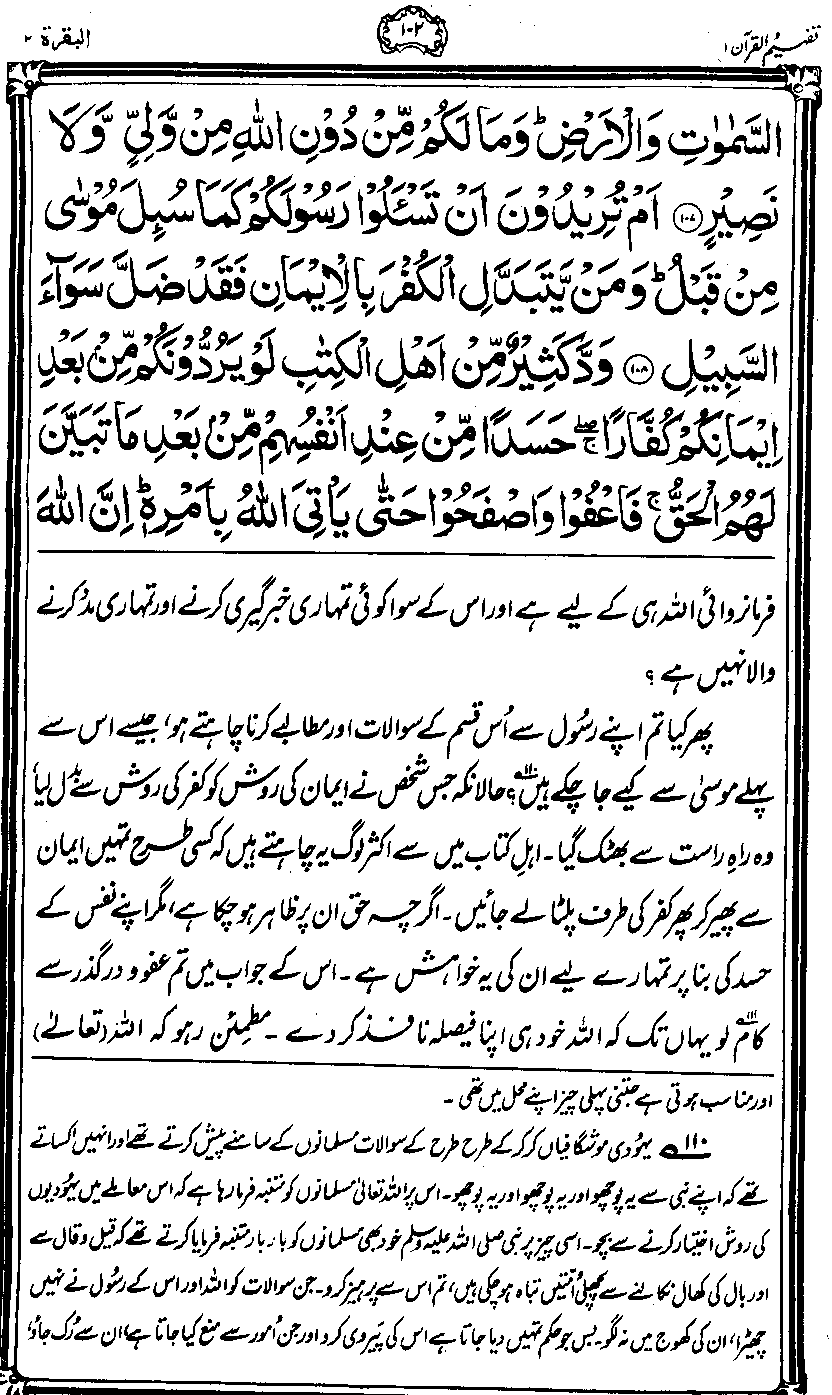 تفہیم القرآن ۱
۱۰۲
البقرۃ ۲
السَّمٰوٰتِ وَالْاَرْضِ ؕ وَمَا لَكُمْ مِّنْ دُوْنِ اللّٰهِ مِنْ وَّلِيٍّ وَّلَا
نَصِيْرٍ ﴿۱۰۷﴾ اَمْ تُرِيْدُوْنَ اَنْ تَسْـَٔلُوْا رَسُوْلَكُمْ كَمَا سُىِٕلَ مُوْسٰى
مِنْ قَبْلُ ؕ وَمَنْ يَّتَبَدَّلِ الْكُفْرَ بِالْاِيْمَانِ فَقَدْ ضَلَّ سَوَآءَ
السَّبِيْلِ ﴿۱۰۸﴾ وَدَّ كَثِيْرٌ مِّنْ اَهْلِ الْكِتٰبِ لَوْ يَرُدُّوْنَكُمْ مِّنْۢ بَعْدِ
اِيْمَانِكُمْ كُفَّارًا ۖۚ حَسَدًا مِّنْ عِنْدِ اَنْفُسِهِمْ مِّنْۢ بَعْدِ مَا تَبَيَّنَ
لَهُمُ الْحَقُّ ۚ فَاعْفُوْا وَاصْفَحُوْا حَتّٰى يَاْتِيَ اللّٰهُ بِاَمْرِهٖ ؕ اِنَّ اللّٰهَ
فرمانروائی اللہ ہی کے لیے ہے اور اس کے سوا کوئی تمہاری خبرگیری کرنے اور تمہاری مدد کرنے
والا نہیں ہے ؟
پھر کیا تم اپنے رسُول سے اُس قسم کے سوالات اور مطالبے کرنا چاہتے ہو، جیسے اس سے
پہلے موسیٰ سے کیے جا چکے ہیں؟ حالانکہ جس شخص نے ایمان کی روش کو کفر کی روش سے بدل لیا،
وہ راہِ راست سے بھٹک گیا۔ اہلِ کتاب میں سے اکثر لوگ یہ چاہتے ہیں کہ کسی طرح تمہیں ایمان
سے پھیر کر پھر کفر کی طرف پلٹا لے جائیں۔ اگرچہ حق ان پر ظاہر ہو چکا ہے، مگر اپنے نفس کے
حسد کی بنا پر تمہارے لیے ان کی یہ خواہش ہے۔ اس کے جواب میں تم عفو و درگذر سے
کام لو یہاں تک کہ اللہ خود ہی اپنا فیصلہ نافذ کر دے۔ مطمئن رہو کہ اللہ (تعالےٰ)
اور مناسب ہوتی ہے جتنی پہلی چیز اپنے محل میں تھی۔
۱۱۰؎ یہُودی موشگافیاں کر کر کے طرح طرح کے سوالات مسلمانوں کے سامنے پیش کرتے تھے اور انہیں اکساتے
تھے کہ اپنے نبی سے یہ پوچھو اور یہ پوچھو اور یہ پوچھو۔ اس پر اللہ تعالیٰ مسلمانوں کو متنبہ فرما رہا ہے کہ اس معاملے میں یہُودیوں
کی روش اختیار کرنے سے بچو۔ اسی چیز پر نبی صلی اللہ علیہ وسلم خود بھی مسلمانوں کو بار بار متنبہ فرمایا کرتے تھے کہ قیل و قال سے
اور بال کی کھال نکالنے سے پچھلی اُمتیں تباہ ہو چکی ہیں، تم اس سے پرہیز کرو۔ جن سوالات کو اللہ اور اس کے رسول نے نہیں
چھیڑا، ان کی کھوج میں نہ لگو۔ بس جو حکم تمہیں دیا جاتا ہے اس کی پَیروی کرو اور جن اُمور سے منع کیا جاتا ہے ان سے رُک جاؤ،